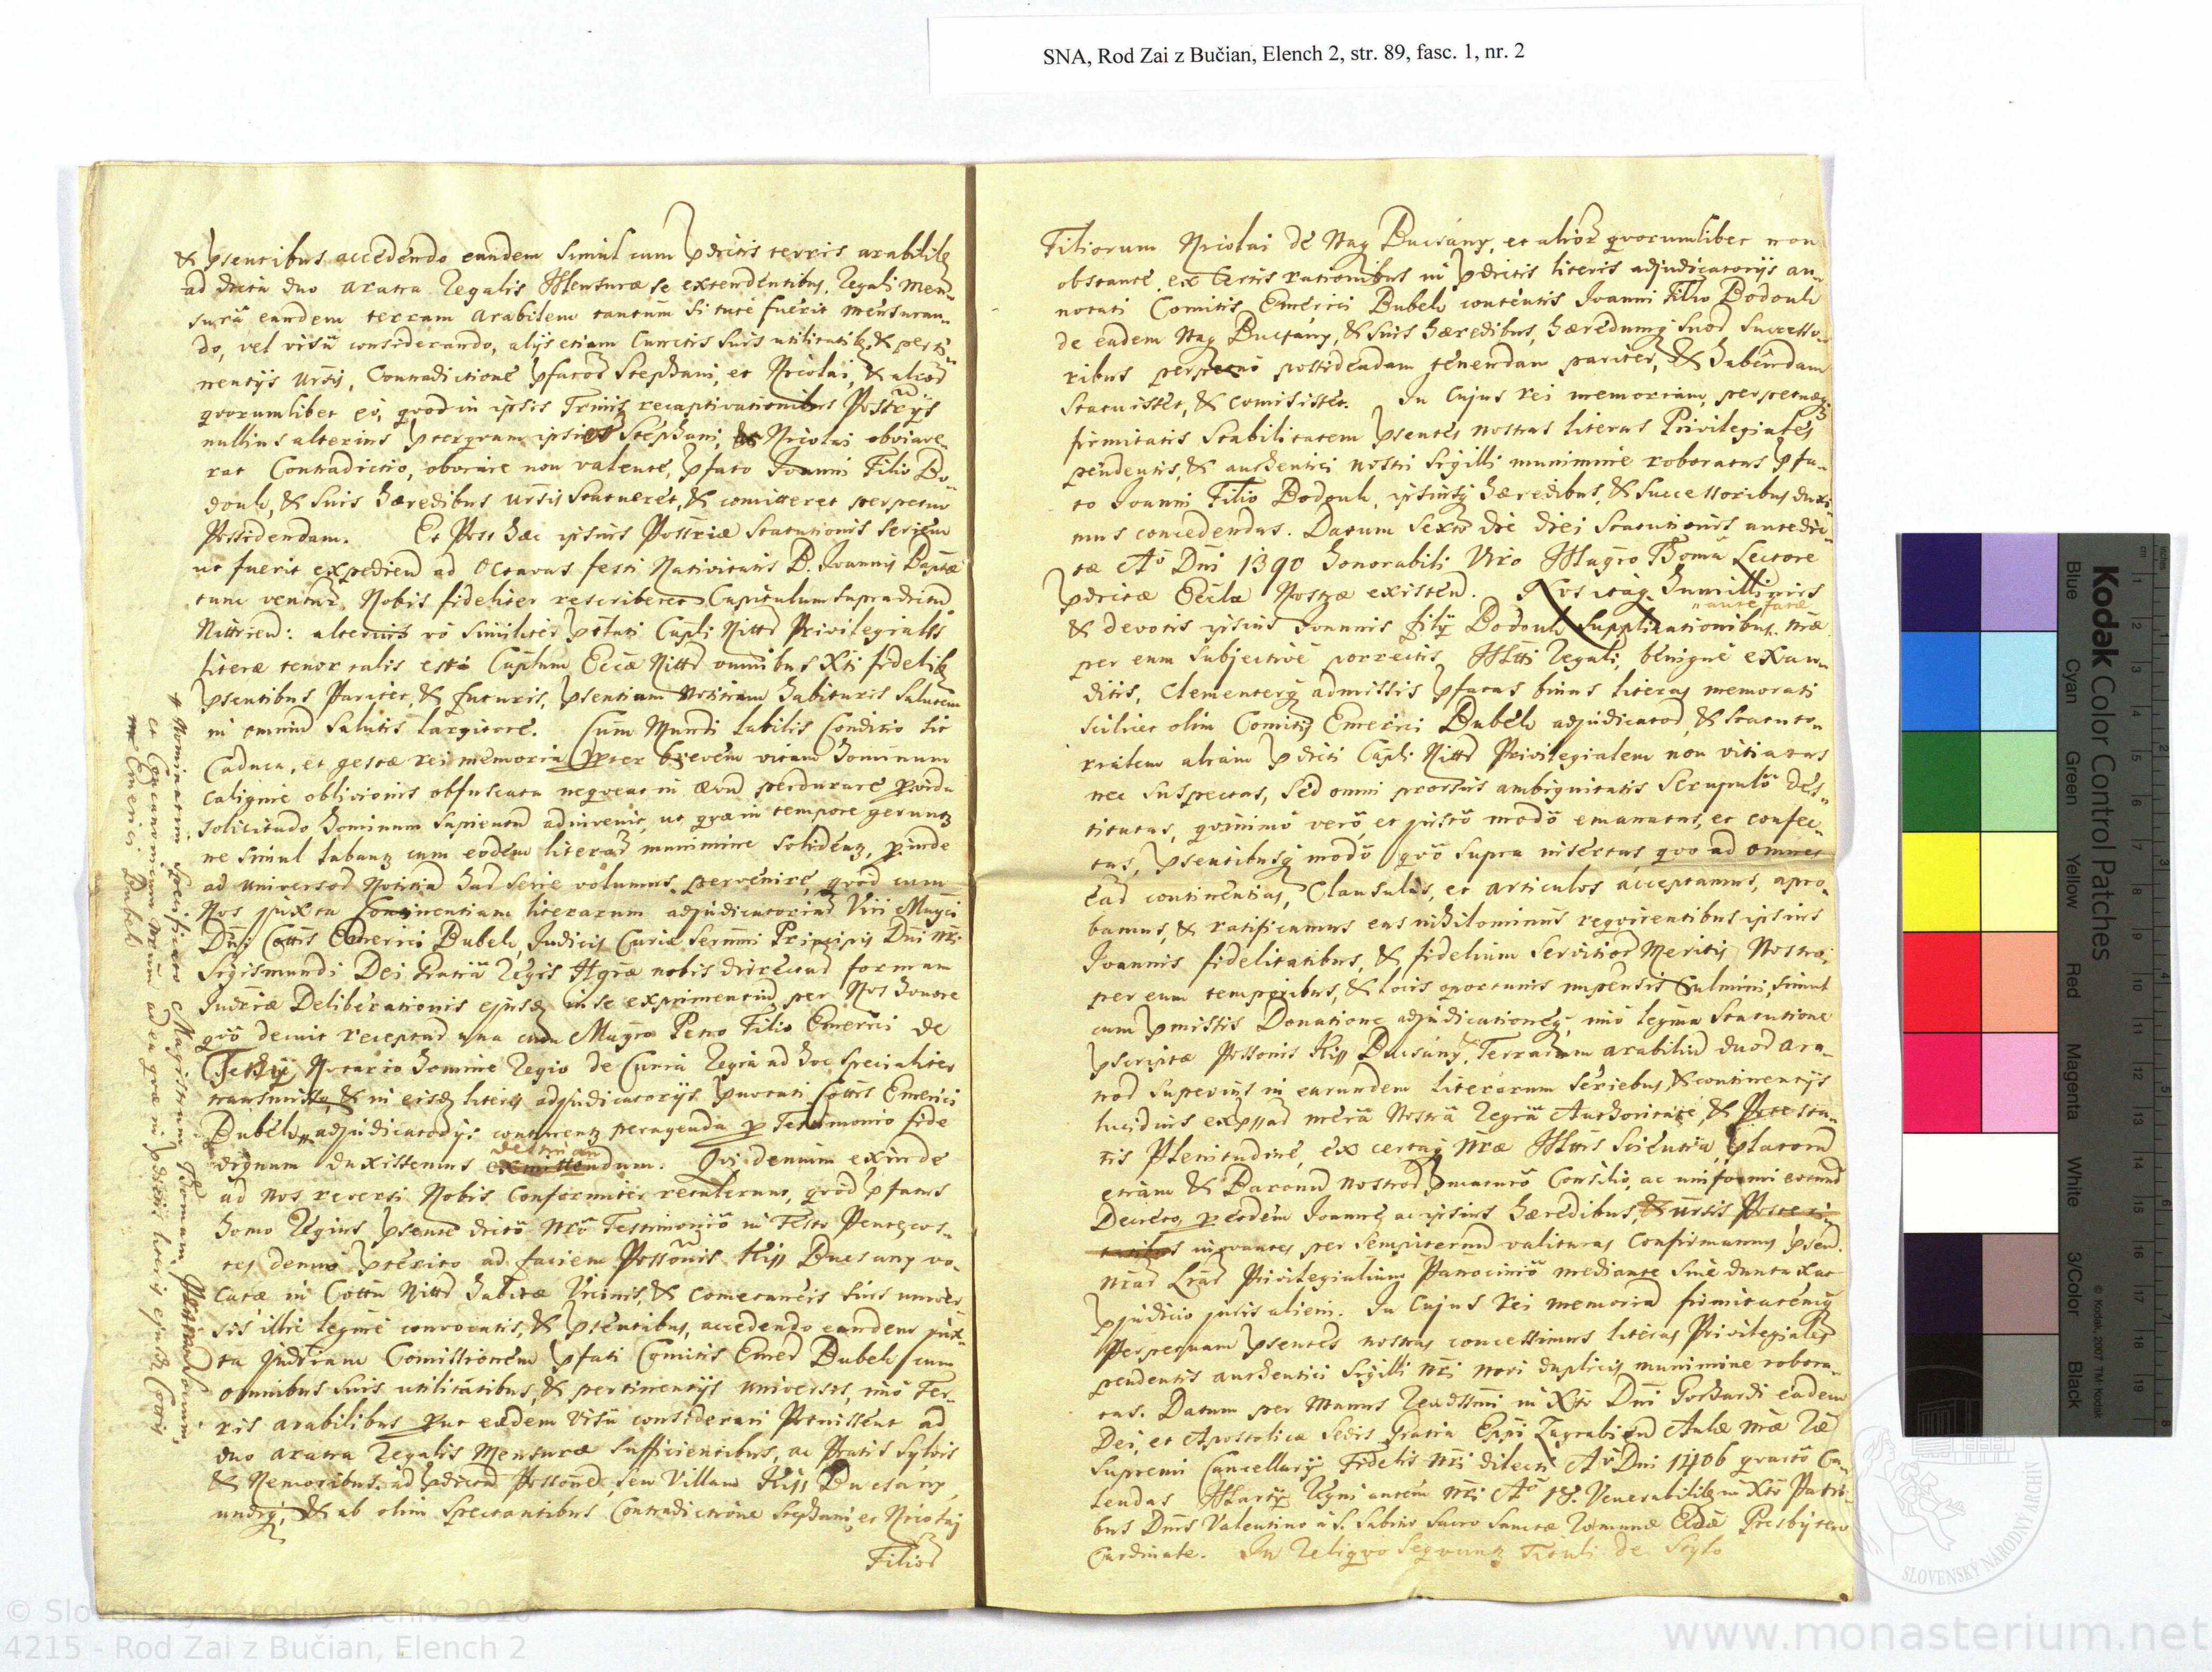 SNA, Rod Zai z Bučian, Elench 2, str. 89, fasc. 1, nr. 2
& psentibus accedendo eandem simul cum pdictis terris arabilib
ad dicta duo aratra Regalis Mensuræ se extendentibus, Regali men-
surâ eandem terram arabilem tantum si tute fuerit mensuran-
do, vel visû considerando, alijs etiam cunctis suis utilitatib, & perti-
nentijs Ursis, Contradictione pfator Stephani, et Nicolai, & alior
quorumlibet eò, quod in ipsis Trinis recaptivationibus Possrijs
nullius alterius ptergram ipsior Stephani, Nicolai obviare-
rat Contradictio, obviare non valente, pfato Joanni Filio Bo-
douh, & suis Hæredibus Ursis statueret, & comitteret perpetuo
Possidendam. Et Post hæc ipsius Possriæ statutionis seriem
ut fuerit expedien ad Octavas festi Nativitatis B. Joannis Baptæ
tunc ventur Nobis fideliter rescriberet Capitulum supradictu
Nittrien: alterius vò similiter pfati Capli Nittr Privilegialis
literæ tenor talis est: Caplum Eccæ Nittr omnibus Xti fidelib
Psentibus Pariter, & futuris, psentiam Notitiam habituris Salutem
in omniu Salutis Largitore. Cum Mundi labilis Conditio sit
Caduca, et gestæ rei memoria ppter brevem vitam hominum
caligine oblivionis obfuscata nequeat in ævu perdurare pvida
solicitudo hominum sapientu adinvenit, ut quæ in tempore gerunt
ne simul labant cum eodem literar munimine solident, pinde
ad universor Notitia har serie volumus pervenire, quod cum
Nos juxta Continentiam literarum adjudicatoriar Viri Magci
Dni Cottis Emerici Bubek, Judicis Curiæ Sermi Principis Dni Nri
Sigismundi Dei Gratia Regis Hgriæ nobis direct formam
Judriæ Deliberationis ejusd in se exprimentiu per Nos honore
quò decuit receptar una cum Magro Petro Filio Emerici de
Notario homine Regio de Curia Regia ad hoc specialiter
transmisso, & in eisd literis adjudicatorijs pnotati Cottis Emerici
Bubek, adjudicatorijs continent peragenda p Testimonio fide
dignum duxissemus destinan
exmittendum. Qui demum exinde
ad nos reversi Nobis Conformiter retulerunt, quòd pfatus
homo Regius psente dicto Nrõ Testimoniò in Festo Pentecos-
tes demu pterito ad faciem Possonis Kiss Bucsany vo-
catæ in Cottu Nittr habitæ Vicinis, & cometaneis suis univer
sis illic legme convocatis, & psentibus, accedendo eandem jux-
ta Judriam Comissionem pfati Comitis Emer Bubek cum
omnibus suis utilitatibus, & pertinentijs universis, imò Ter-
ris arabilibus put eædem visu considerari Potuissent ad
duo aratra Regalis Mensuræ sufficientibus, ac Pratis Sylvis
& Nemoribus, ad pdictar Possoned, seu Villam Kiss Bucsany,
undiq, & ab olim spectantibus Contradictione Stephani, et Nicolai
Filior
Nominatim Specificato Magistrum Thomam
et Concanonicum Nrum ad ea quæ in pdictis literis ejusd Cottis
Emerici Bubek
Filiorum Nicolai de Nag Bucsány, et alior quorumlibet non
obstante, ex certis rationibus in pdictis literis adjudicatorijs an-
notati Comitis Emerici Bubek contentis Joanni Filio Bodouh
de eadem Nag Bucsány, & suis hæredibus, hæredumq suor successo-
ribus perpetuò possidendam tenendam pariter, & habendam
Statuisset, & comisisset. In Cujus rei memoriam, perpetuæq
firmitatis Stabilitatem psentes nostras literas Privilegiales
pendentis, & authentici nostri sigilli munimine roboratas pfa-
to Joanni Filio Bodouh, ipsiusq hæredibus, & successoribus duxi
mus concedendas. Datum sexto die diei Statutionis antedic-
tæ Aò Dni 1390 honorabili Viro Magro Thoma Lectore
pdictæ Ecclæ Nostræ existen. Nos itaq humillimis
& devotis ipsius Joannis filÿ Bodouh supplicationibus Nræ
per eum subjective porrectis Mtti Regali, benigne exau-
ditis, Clementerq admissis pfatas binas literas memorati
scilicet olim Comitis Emerici Bubek adjudicator, & statuto-
rialem aliam pdicti Capli Nittr Privilegialem non vitiatas
nec suspectas, sed omni prorsus ambiguitatis scrupulò des-
titutas, quinimò verò, et justò modò emanatas, et confec-
tas, psentibusq modò quò supra insertas quo ad omnes
ear continentias, Clausulas, et articulos acceptamus, apro-
bamus, & ratificamus eas nihilominus requirentibus ipsius
Joannis fidelitatibus, & fidelium servitior Meritis Nostro,
per eum temporibus, & locis oportunis impensis Culmini, simul
cum pmissis Donatione adjudicationeq, imò legma Statutione
pscriptæ Possonis Kiss Bucsány, Terrarum arabiliu duor ara-
tror superius in earundem literarum seriebus, & continentijs
lucidius expssar merâ Nostrâ Regiâ Authoritate, & Ptesta-
tis Plenitudine, ex certaq Nræ Mttis scientia, Platoru
etiam & Baronu nostror pmaturò Consiliò, ac uniformi eorund
Decreto, p eodem Joanne, ac ipsius hæredibus, & Ursis Posteri-
tatibus innovantes per sempiternu valituras Confirmamus psen.
Nrar Lrar Privilegialium Patrociniò mediante Sine duntaxat
Pjudicio juris alieni. In Cujus Rei memoria firmitatemq
Perpetuam psentes nostras concessimus literas Privilegiales
pendentis authentici sigilli Nri novi duplicis munimine robora-
tas. Datum per Manus Rendssimi in Xto Dni Eorhardi eadem
Dei, et Apostolicæ Sedis Gratia Eppi Zagrabien Aulæ Nræ Ræ
Supremi Cancellarij Fidelis Nri dilecti Aò Dni 1406 quartò Ca-
lendas Martÿ Regni autem Nri Aò 18. Venerabilib in Xto Patri-
bus Dnis Valentino a S. Sabino Sacro Sanctæ Romanæ Ecclæ Presbytero
Cardinale. In Reliquo sequunt Tituli de Stylo
Kodak Color Control Patches
Blue
Cyan
Green
Yellow
Red
Magenta
White
3/Color
Black
© Kodak, 2007 TM: Kodak
SLOVENSKÝ NÁRODNÝ ARCHÍV
© Slovenský národný archív 2010
4215 - Rod Zai z Bučian, Elench 2
www.monasterium.net